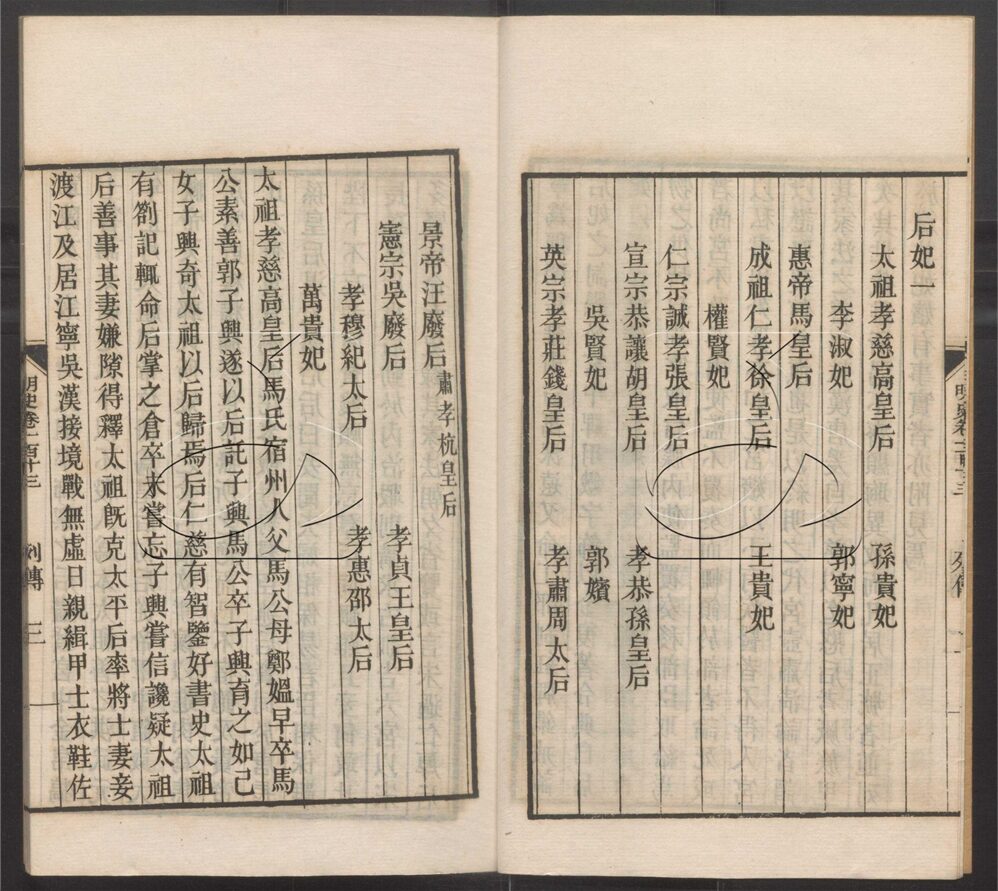 后妃一
太祖孝慈高皇后 孫貴妃
李淑妃 郭寧妃
惠帝馬皇后
成祖仁孝徐皇后 王貴妃
權賢妃
仁宗誠孝張皇后
宣宗恭讓胡皇后 孝恭孫皇后
吳賢妃 郭嬪
英宗孝莊錢皇后 孝肅周太后
景帝汪廢后 肅孝杭皇后
憲宗吳廢后 孝貞王皇后
孝穆紀太后 孝惠邵太后
萬貴妃
太祖孝慈高皇后馬氏宿州人父馬公母鄭媼早卒馬
公素善郭子興遂以后託子興馬公卒子興育之如己
女子興奇太祖以后歸焉后仁慈有智鑒好書史太祖
有劄記輒命后掌之倉卒未嘗忘子興嘗信讒疑太祖
后善事其妻嫌隙得釋太祖旣克太平后率將士妻妾
渡江及居江寧吳漢接境戰無虛日親緝甲士衣鞋佐
明史卷一百十三 列傳 三